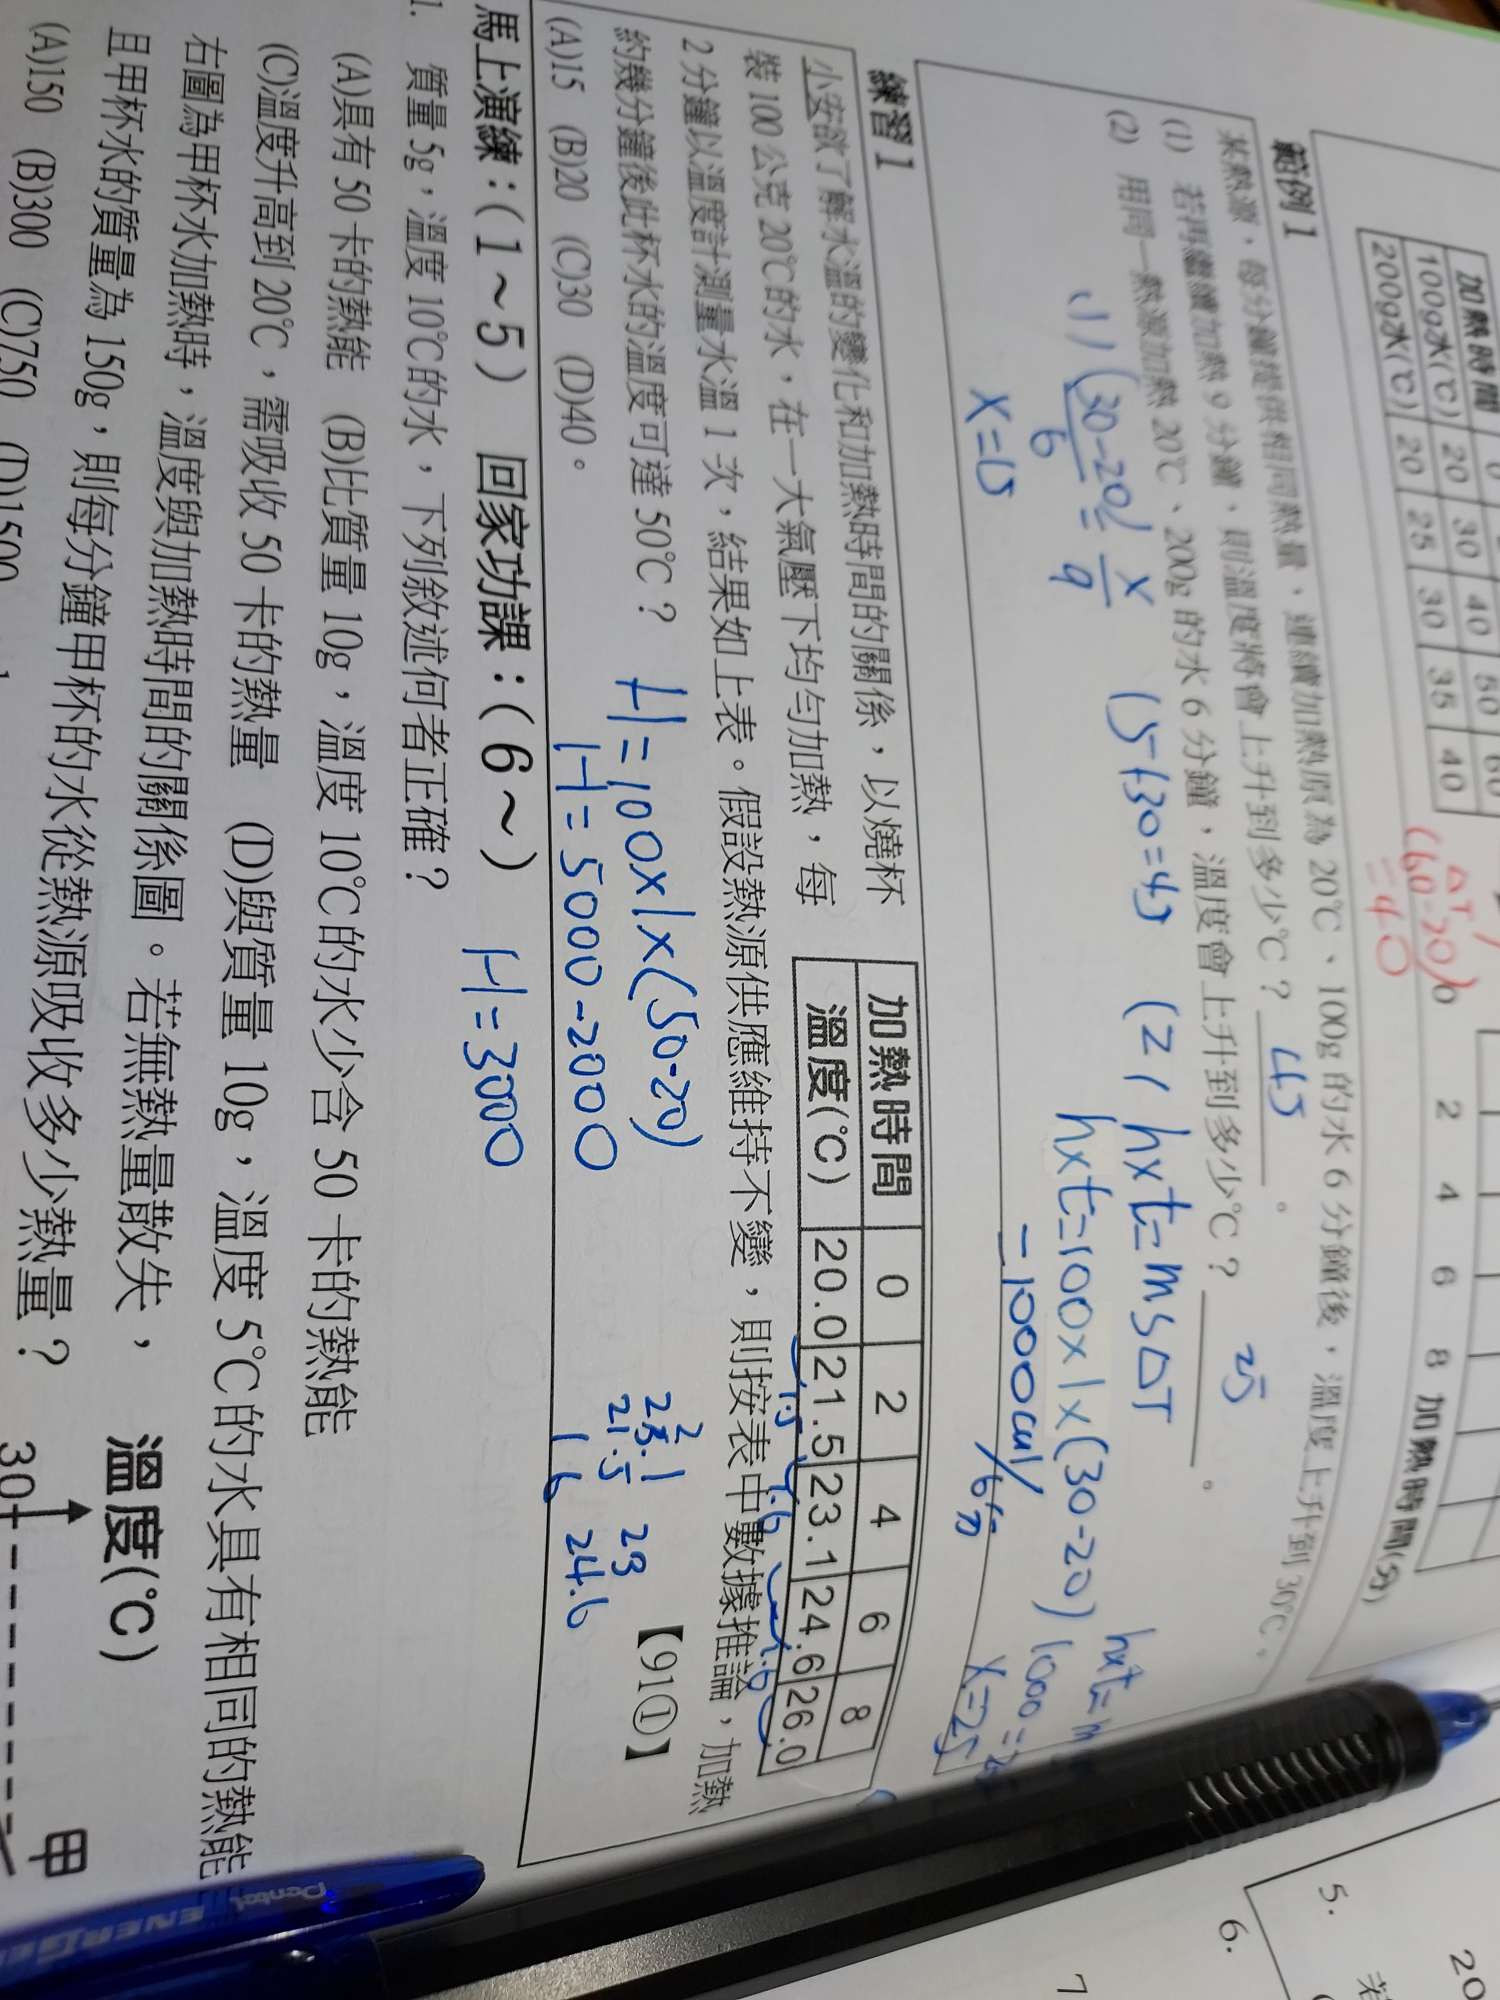 加熱時間 0
100g水(℃) 20 30 40 50 60
200g水(℃) 20 25 30 35 40
ΔT
(60-20)
=40
0 2 4 6 8 加熱時間(分)
範例1
某熱源,每分鐘提供相同熱量,連續加熱原為20℃、100g的水6分鐘後,溫度上升到30℃,
(1) 若再繼續加熱9分鐘,則溫度將會上升到多少℃? 45 。
(2) 用同一熱源加熱20℃、200g的水6分鐘,溫度會上升到多少℃? 25 。
(1) (30-20)/6 = x/9
x=15
15+30=45
(2) h×t=msΔT
h×t=100×1×(30-20)
=1000cal/6分
1000=
x=25
練習1
小安欲了解水溫的變化和加熱時間的關係,以燒杯
裝100公克20℃的水,在一大氣壓下均勻加熱,每
2分鐘以溫度計測量水溫1次,結果如上表。假設熱源供應維持不變,則按表中數據推論,加熱
約幾分鐘後此杯水的溫度可達50℃? 【91①】
(A)15 (B)20 (C)30 (D)40。
加熱時間 0 2 4 6 8
溫度(℃) 20.0 21.5 23.1 24.6 26.0
H=100×1×(50-20)
H=5000-2000
H=3000
23.1
21.5
1 6
23
24.6
馬上演練:(1~5) 回家功課:(6~)
1. 質量5g,溫度10℃的水,下列敘述何者正確?
(A)具有50卡的熱能 (B)比質量10g,溫度10℃的水少含50卡的熱能
(C)溫度升高到20℃,需吸收50卡的熱量 (D)與質量10g,溫度5℃的水具有相同的熱能
右圖為甲杯水加熱時,溫度與加熱時間的關係圖。若無熱量散失,
且甲杯水的質量為150g,則每分鐘甲杯的水從熱源吸收多少熱量?
(A)150 (B)300 (C)750 (D)1500
溫度(℃)
30
甲
Pentel ENERGEL
5.
6.
7
20